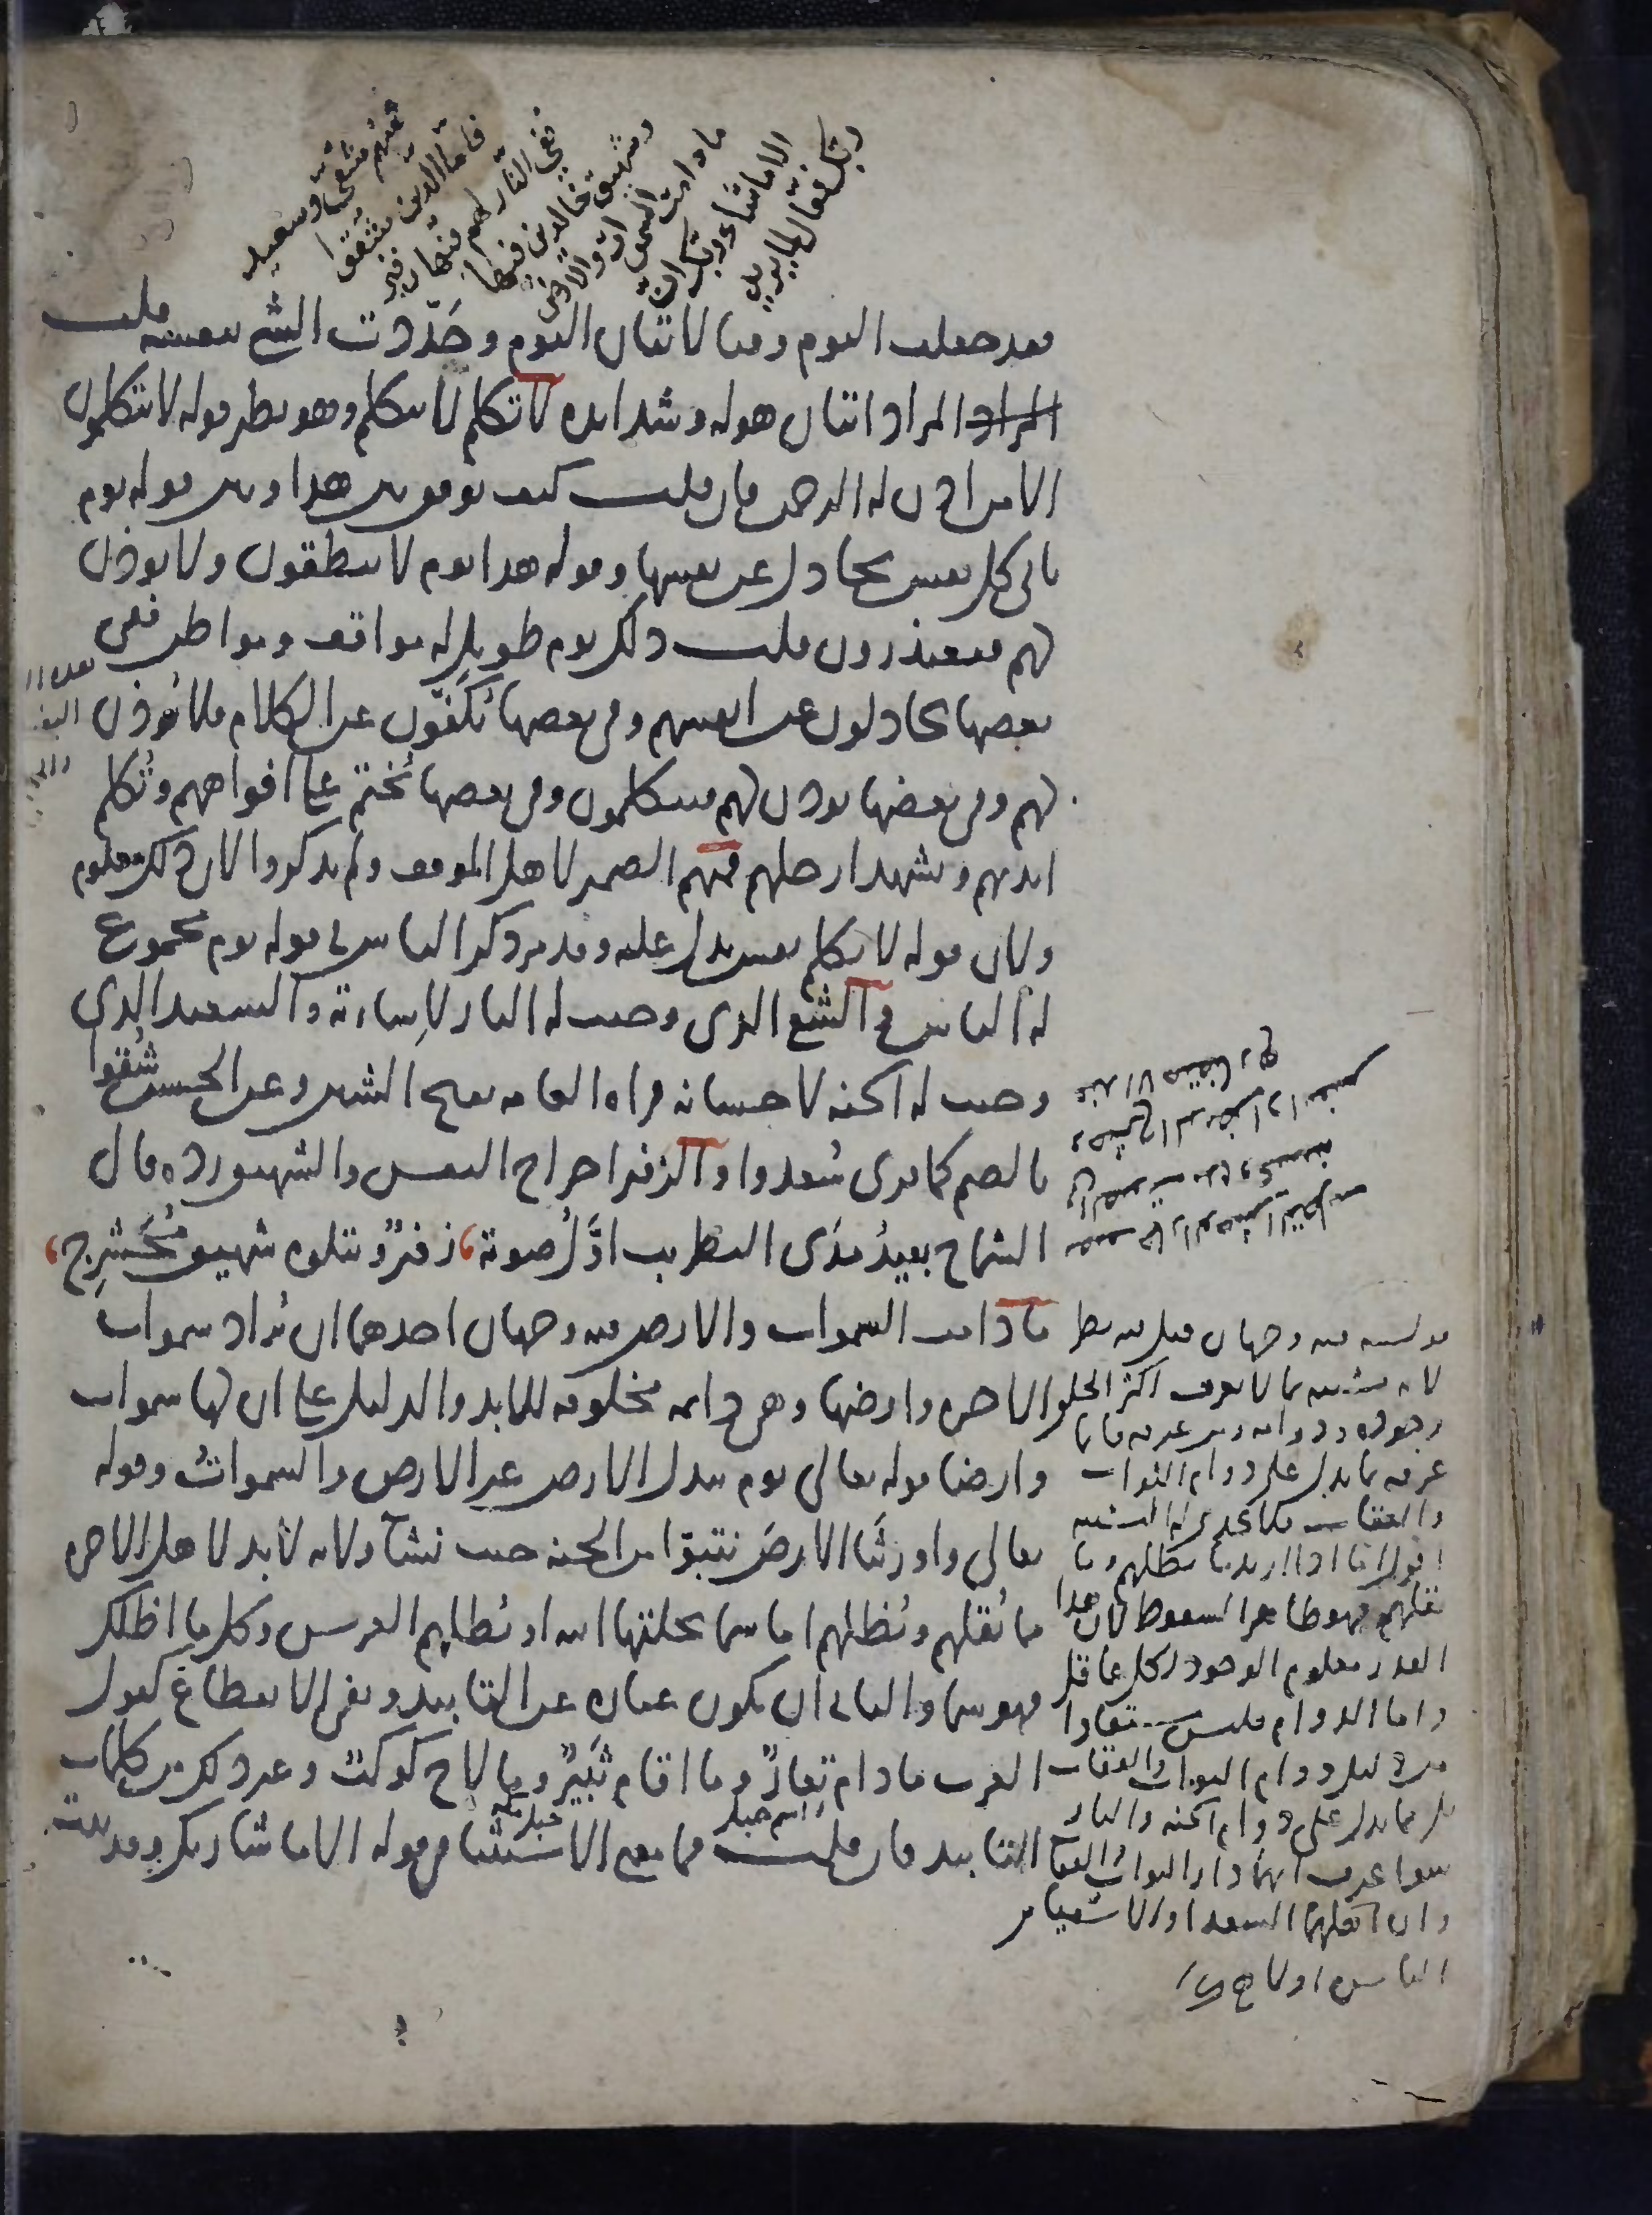 فمنهم شقي وسعيد
فاما الذين شقوا
ففي النار لهم فيها زفير
وشهيق خالدين فيها
ما دامت السموات والارض
الا ما شاء ربك ان
ربك فعال لما يريد
فقد جعلت اليوم وقتا لاتيان اليوم وحددت الشي بنفسه قلت
المراد المراد اتيان هوله وشدايده لا تكلم لا تتكلم وهو نظير قوله لا يتكلمون
الا من اذن له الرحمن فان قلت كيف يوفق بين هذا وبين قوله يوم
تاتي كل نفس تجادل عن نفسها وقوله هذا يوم لا ينطقون ولا يوذن
لهم فيعتذرون قلت ذلك يوم طويل له مواقف ومواطن ففي
بعضها يجادلون عن انفسهم وفي بعضها يكفون عن الكلام فلا يوذن
لهم وفي بعضها يوذن لهم فيتكلمون وفي بعضها يختم على افواههم وتكلم
ايديهم وتشهد ارجلهم فمنهم الضمير لاهل الموقف ولم يذكروا لان ذلك معلوم
ولان قوله لا تكلم نفس يدل عليه وقد مر ذكر الناس في قوله يوم مجموع
له الناس والشقي الذي وجبت له النار لاساءته والسعيد الذي
وجبت له الجنة لاحسانه قراه العامه بفتح الشين وعن الحسن شقوا
بالضم كما قري سعدوا والزفير اخراج النفس والشهيق رده قال
الشماخ بعيد مدى التطريب اول صوته زفير ويتلوه شهيق محشرج
ما دامت السموات والارض فيه وجهان احدهما ان تراد سموات
الاخره وارضها وهي دايمه مخلوقه للابد والدليل على ان لها سموات
وارضا قوله تعالى يوم تبدل الارض غير الارض والسموات وقوله
تعالى واورثنا الارض نتبوا من الجنة حيث نشا ولانه لا بد لاهل الاخره
مما يقلهم ويظلهم اما سما يخلقها الله او يظلهم العرش وكل ما اظلك
فهو سما والثاني ان يكون عباره عن التابيد ونفي الانقطاع كقول
العرب ما دام تعار وما اقام ثبير وما لاح كوكب وغير ذلك من كلمات
اسم جبل
جبل مكه
التابيد فان قلت فما معنى الاستثنا في قوله الا ما شا ربك وقد ثبت
قوله فيه وجهان قيل فيه نظر
لانه تشبيه بما لا يعرف اكثر الخلق
وجوده ودوامه ومن عرفه فانما
عرفه بما يدل على دوام الثواب
والعقاب فلا يجدي له التشبيه
اقول اما اذا اريد ما يظلهم وما
يقلهم فهو ظاهر السقوط لان هذا
القدر معلوم الوجود لكل عاقل
واما الدوام فليس مستفادا
من دليل دوام الثواب والعقاب
بل مما يدل على دوام الجنة والنار
سوا عرف انهما دار الثواب والعقاب
وان اهلهما السعدا والاشقيا من
الناس او لا